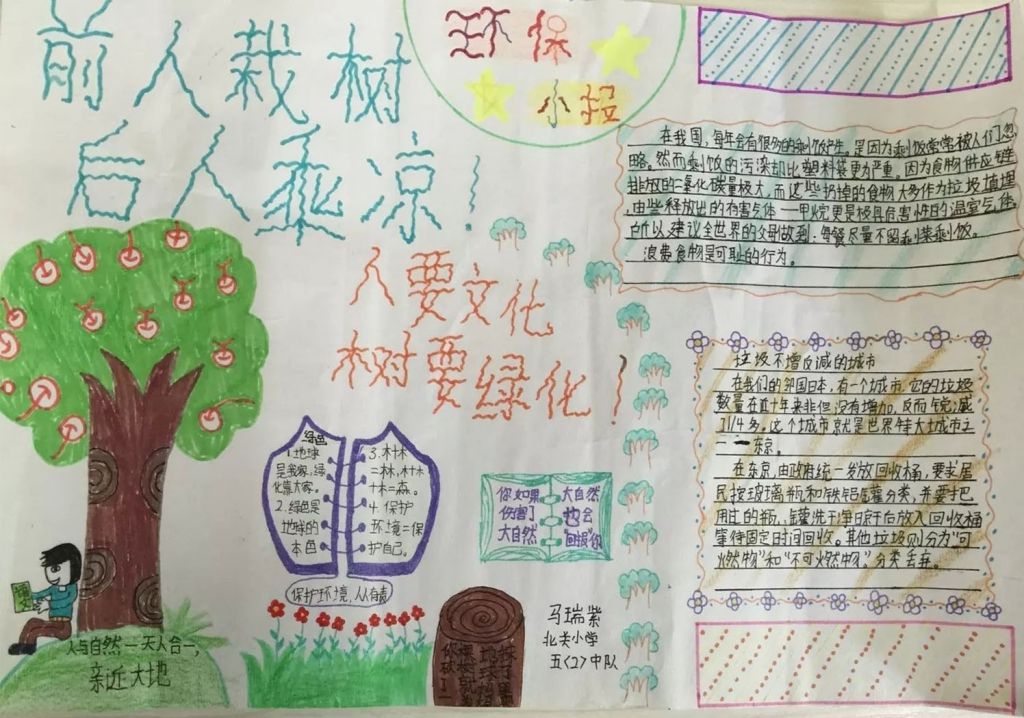 前人栽树
后人乘凉!
环保
小报
在我国,每年会有很多的剩饭产生。是因为剩饭常常被人们忽
略。然而剩饭的污染却比塑料袋更为严重。因为食物供应链
排放的二氧化碳量极大,而这些扔掉的食物大多作为垃圾填埋
,由此释放出的有害气体——甲烷更是极具危害性的温室气体。
所以建议全世界的父母做到:每餐尽量不留剩菜剩饭。
浪费食物是可耻的行为。
人要文化
树要绿化!
垃圾不增反减的城市
在我们的邻国日本,有一个城市,它的垃圾
数量在近十年来非但没有增加,反而锐减
了1/4多。这个城市就是世界特大城市之
一——东京。
在东京,由政府统一发放回收桶,要求居
民按玻璃瓶和铁铝罐分类,并要把
用过的瓶、罐洗干净晾干后放入回收桶
等待固定时间回收。其他垃圾则分为“可
燃物”和“不可燃物”分类丢弃。
绿色
1.地球
是我家,绿
化靠大家。
2.绿色是
地球的
本色
3.木+木
=林,木+木
+木=森。
4.保护
环境=保
护自己。
保护环境,从我有责
你如果
伤害了
大自然
大自然
也会
“回报”你
人与自然一天人合一,
亲近大地
马瑞紫
北关小学
五(2)中队